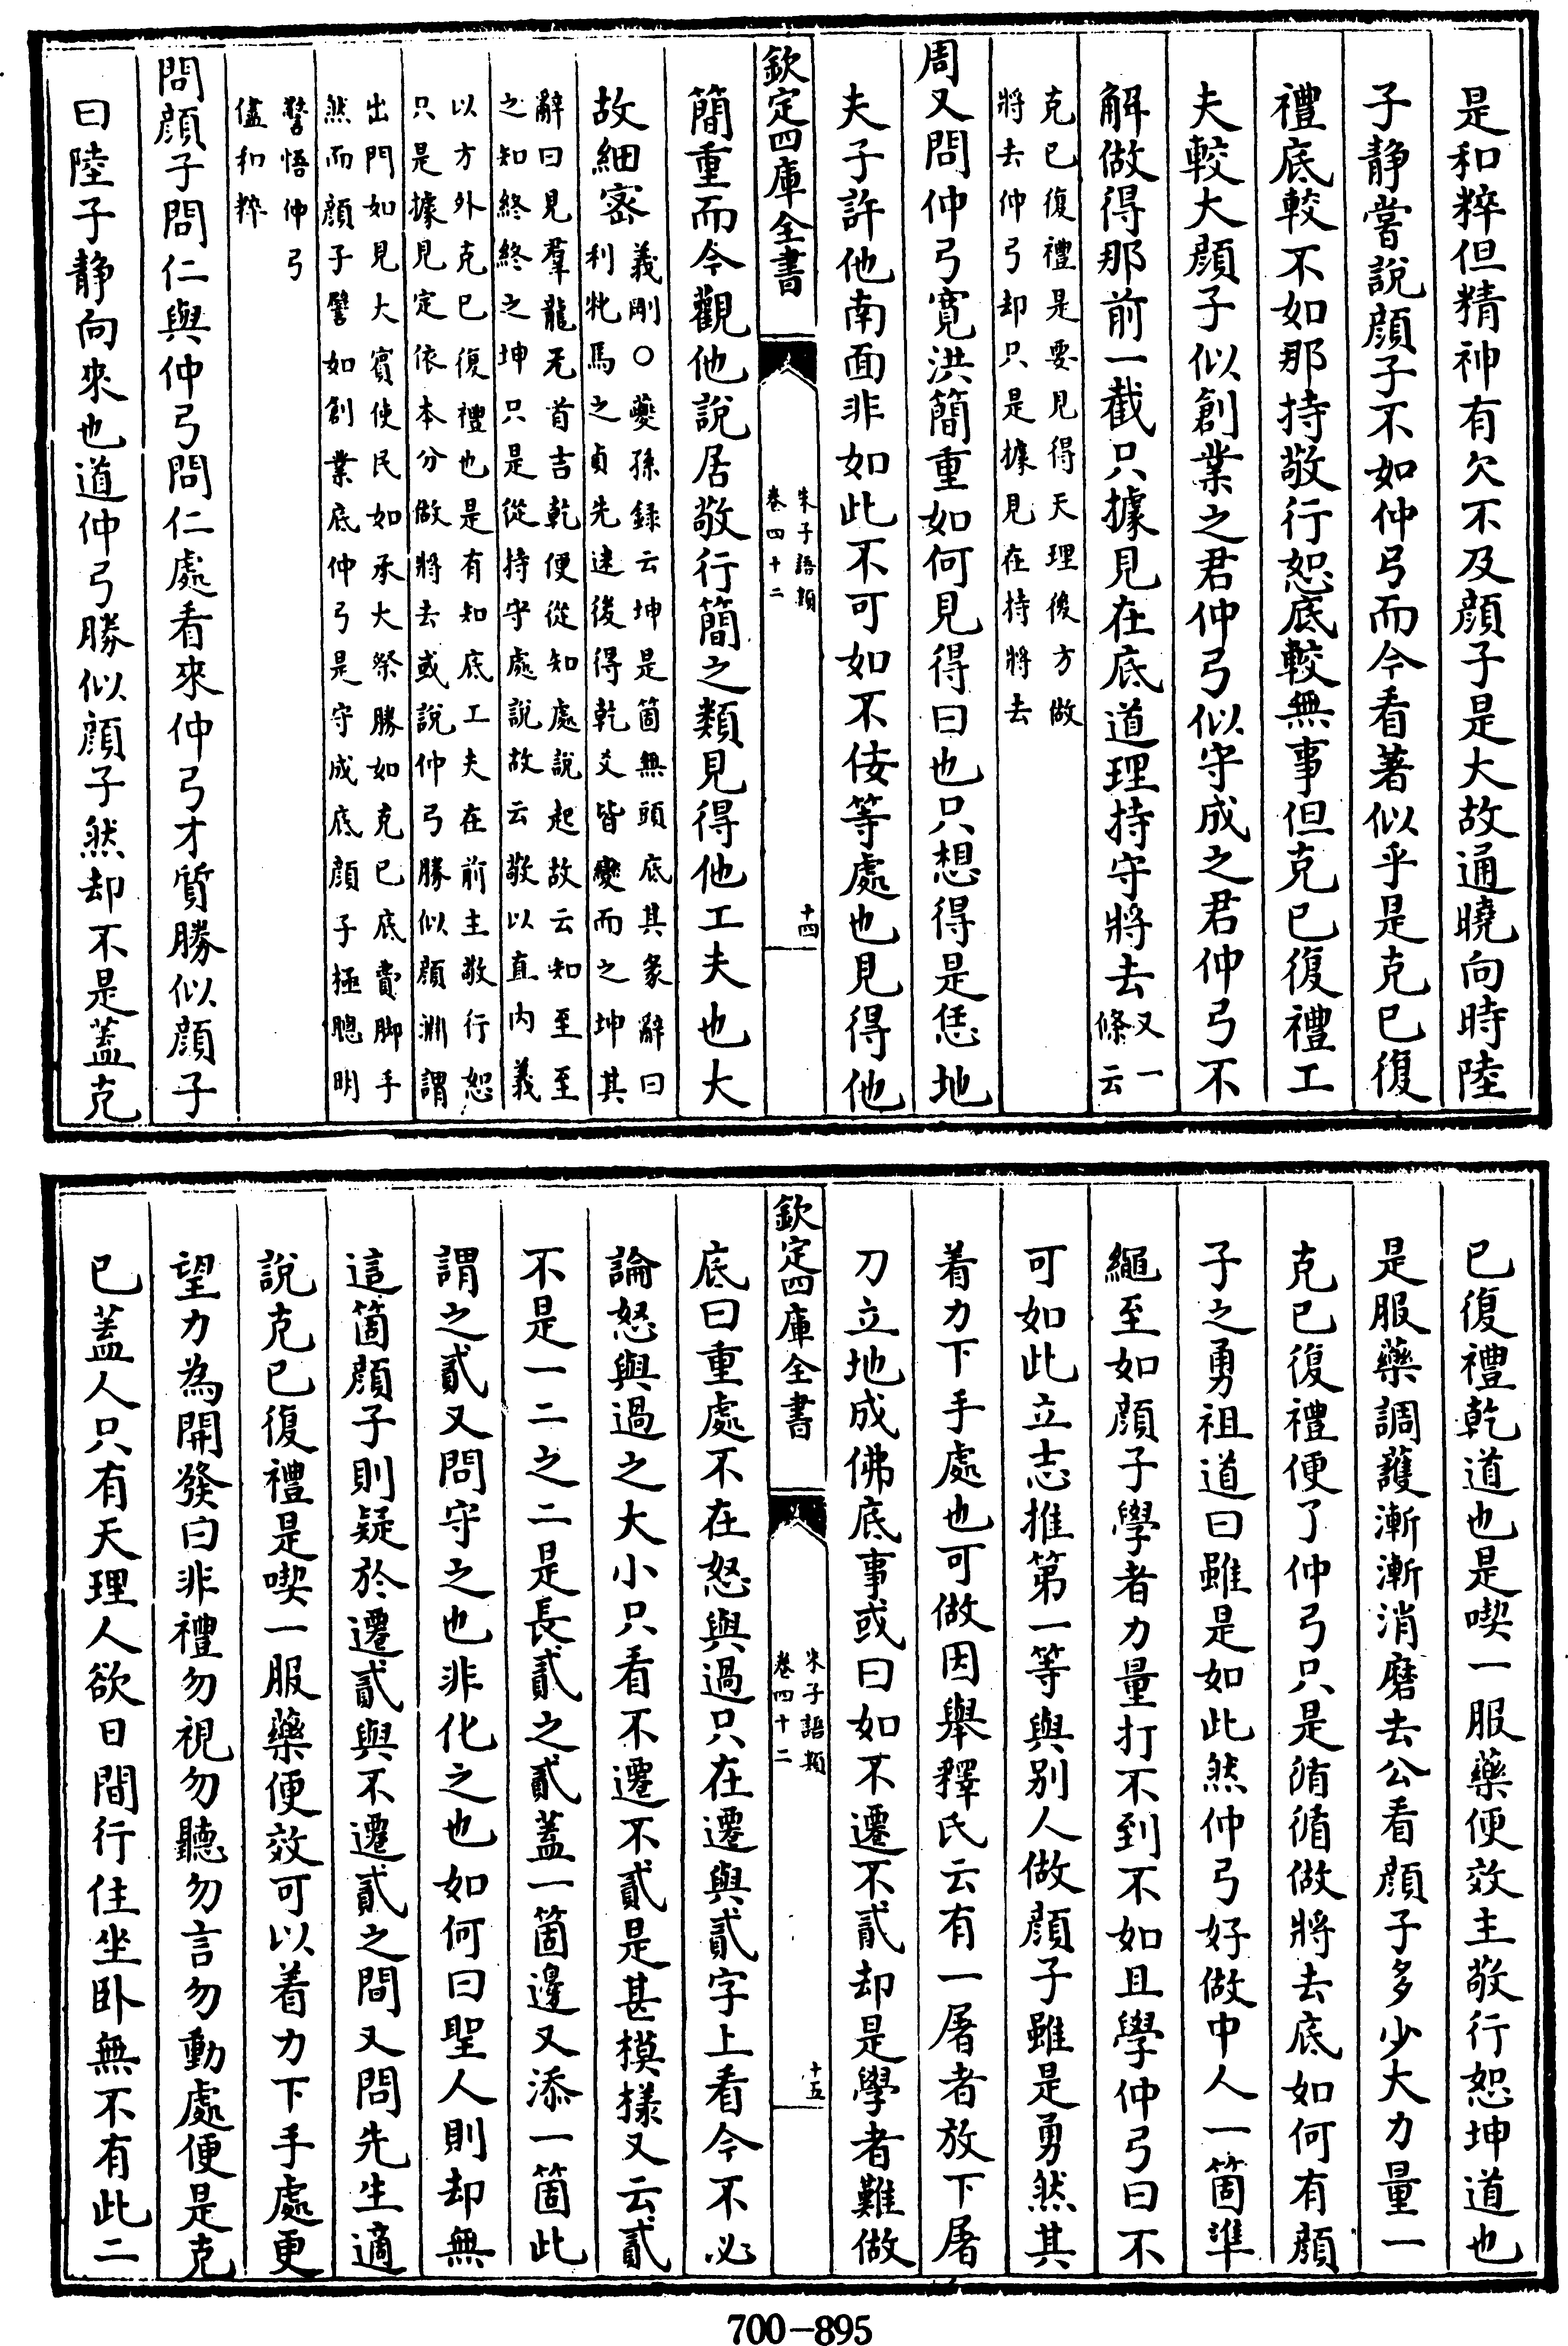 是和粹但精神有欠不及顔子是大故通曉向時陸
子靜嘗說顔子不如仲弓而今看著似乎是克已復
禮底較不如那持敬行恕底較無事但克已復禮工
夫較大顔子似創業之君仲弓似守成之君仲弓不
解做得那前一截只據見在底道理持守將去又一
條云
克已復禮是要見得天理後方做
將去仲弓却只是據見在持將去
周又問仲弓寛洪簡重如何見得曰也只想得是恁地
夫子許他南面非如此不可如不佞等處也見得他
欽定四庫全書
朱子語類
卷四十二
十四
簡重而今觀他說居敬行簡之類見得他工夫也大
故細密義剛○夔孫録云坤是箇無頭底其彖辭曰
利牝馬之貞先迷後得乾爻皆變而之坤其
辭曰見羣龍无首吉乾便從知處說起故云知至至
之知終終之坤只是從持守處說故云敬以直内義
以方外克已復禮也是有知底工夫在前主敬行恕
只是據見定依本分做將去或說仲弓勝似顔淵謂
出門如見大賔使民如承大祭勝如克已底費脚手
然而顔子譬如創業底仲弓是守成底顔子極聰明
警悟仲弓
儘和粹
問顔子問仁與仲弓問仁處看來仲弓才質勝似顔子
曰陸子靜向來也道仲弓勝似顔子然却不是蓋克
已復禮乾道也是喫一服藥便效主敬行恕坤道也
是服藥調護漸漸消磨去公看顔子多少大力量一
克已復禮便了仲弓只是循循做將去底如何有顔
子之勇祖道曰雖是如此然仲弓好做中人一箇準
繩至如顔子學者力量打不到不如且學仲弓曰不
可如此立志推第一等與别人做顔子雖是勇然其
着力下手處也可做因舉釋氏云有一屠者放下屠
刀立地成佛底事或曰如不遷不貳却是學者難做
欽定四庫全書
朱子語類
卷四十二
十五
底曰重處不在怒與過只在遷與貳字上看今不必
論怒與過之大小只看不遷不貳是甚模様又云貳
不是一二之二是長貳之貳蓋一箇邊又添一箇此
謂之貳又問守之也非化之也如何曰聖人則却無
這箇顔子則疑於遷貳與不遷貳之間又問先生適
說克已復禮是喫一服藥便效可以着力下手處更
望力為開發曰非禮勿視勿聽勿言勿動處便是克
已蓋人只有天理人欲日間行住坐卧無不有此二
700-895